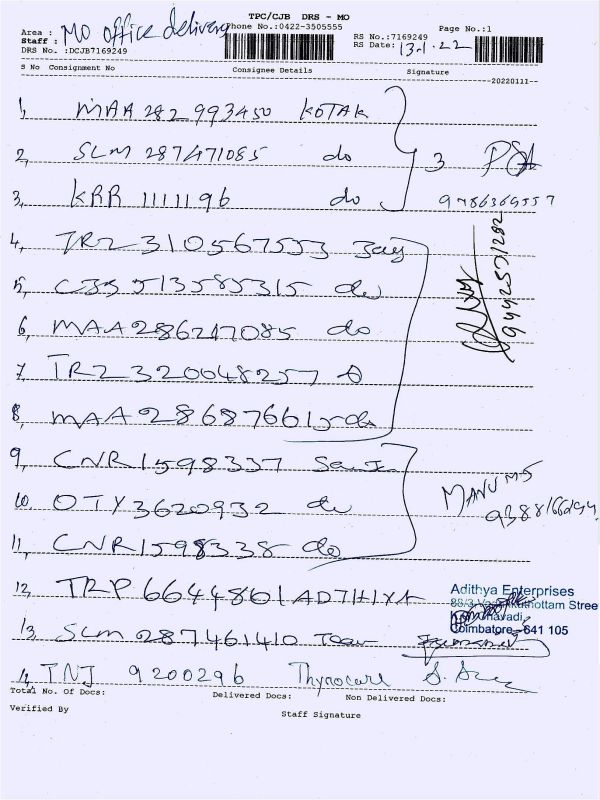 TPC/CJB DRS - MO
Area : MO office delivery
Phone No.:0422-3505555
Page No.:1
Staff :
RS No.:7169249
DRS No. :DCJB7169249
RS Date: 13-1-22
S No Consignment No Consignee Details Signature
20220111
1, MAA 282 993450 KOTAK
2, SLM 287471085 do 3
3, KRR 1111196 do
4, TRZ 310567553
5, 513585315 do
6, MAA 286247085 do
7, TRZ 320048257
8, MAA 286876615 do
9442531282
9, CNR 1598337
10, OTY 3620932 do
MANU MS
11, CNR 1598338 do
12, TRP 6644861 ADTHIYA
Adithya Enterprises
Coimbatore - 641 105
13, SLM 287461410
14, TNJ 9200296 Thyrocare
Total No. Of Docs: Delivered Docs: Non Delivered Docs:
Verified By
Staff Signature